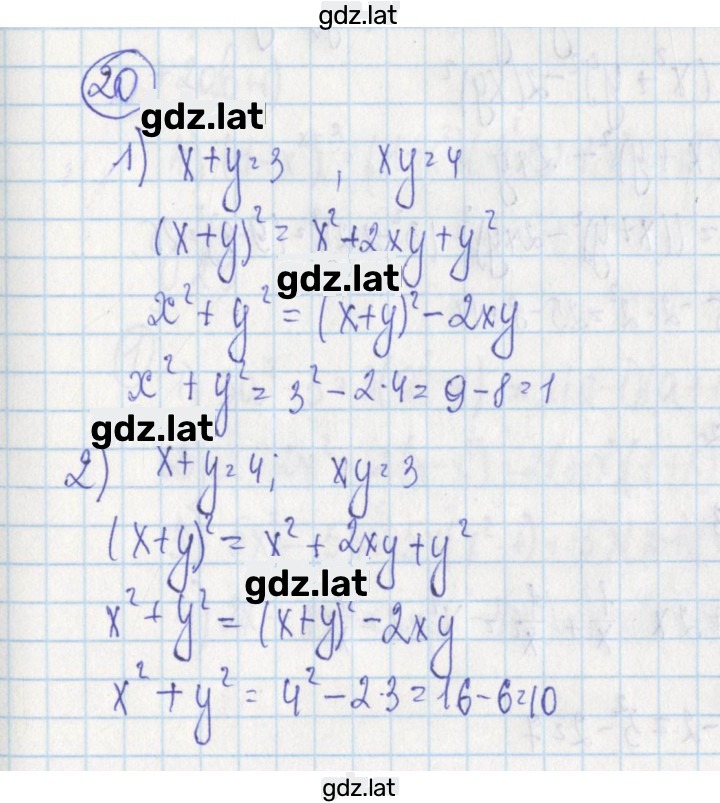 gdz.lat
20
gdz.lat
1) x+y=3 , xy=4
(x+y)²=x²+2xy+y²
gdz.lat
x²+y²=(x+y)²-2xy
x²+y²=3²-2·4=9-8=1
gdz.lat
2) x+y=4; xy=3
(x+y)²=x²+2xy+y²
gdz.lat
x²+y²=(x+y)²-2xy
x²+y²=4²-2·3=16-6=10
gdz.lat